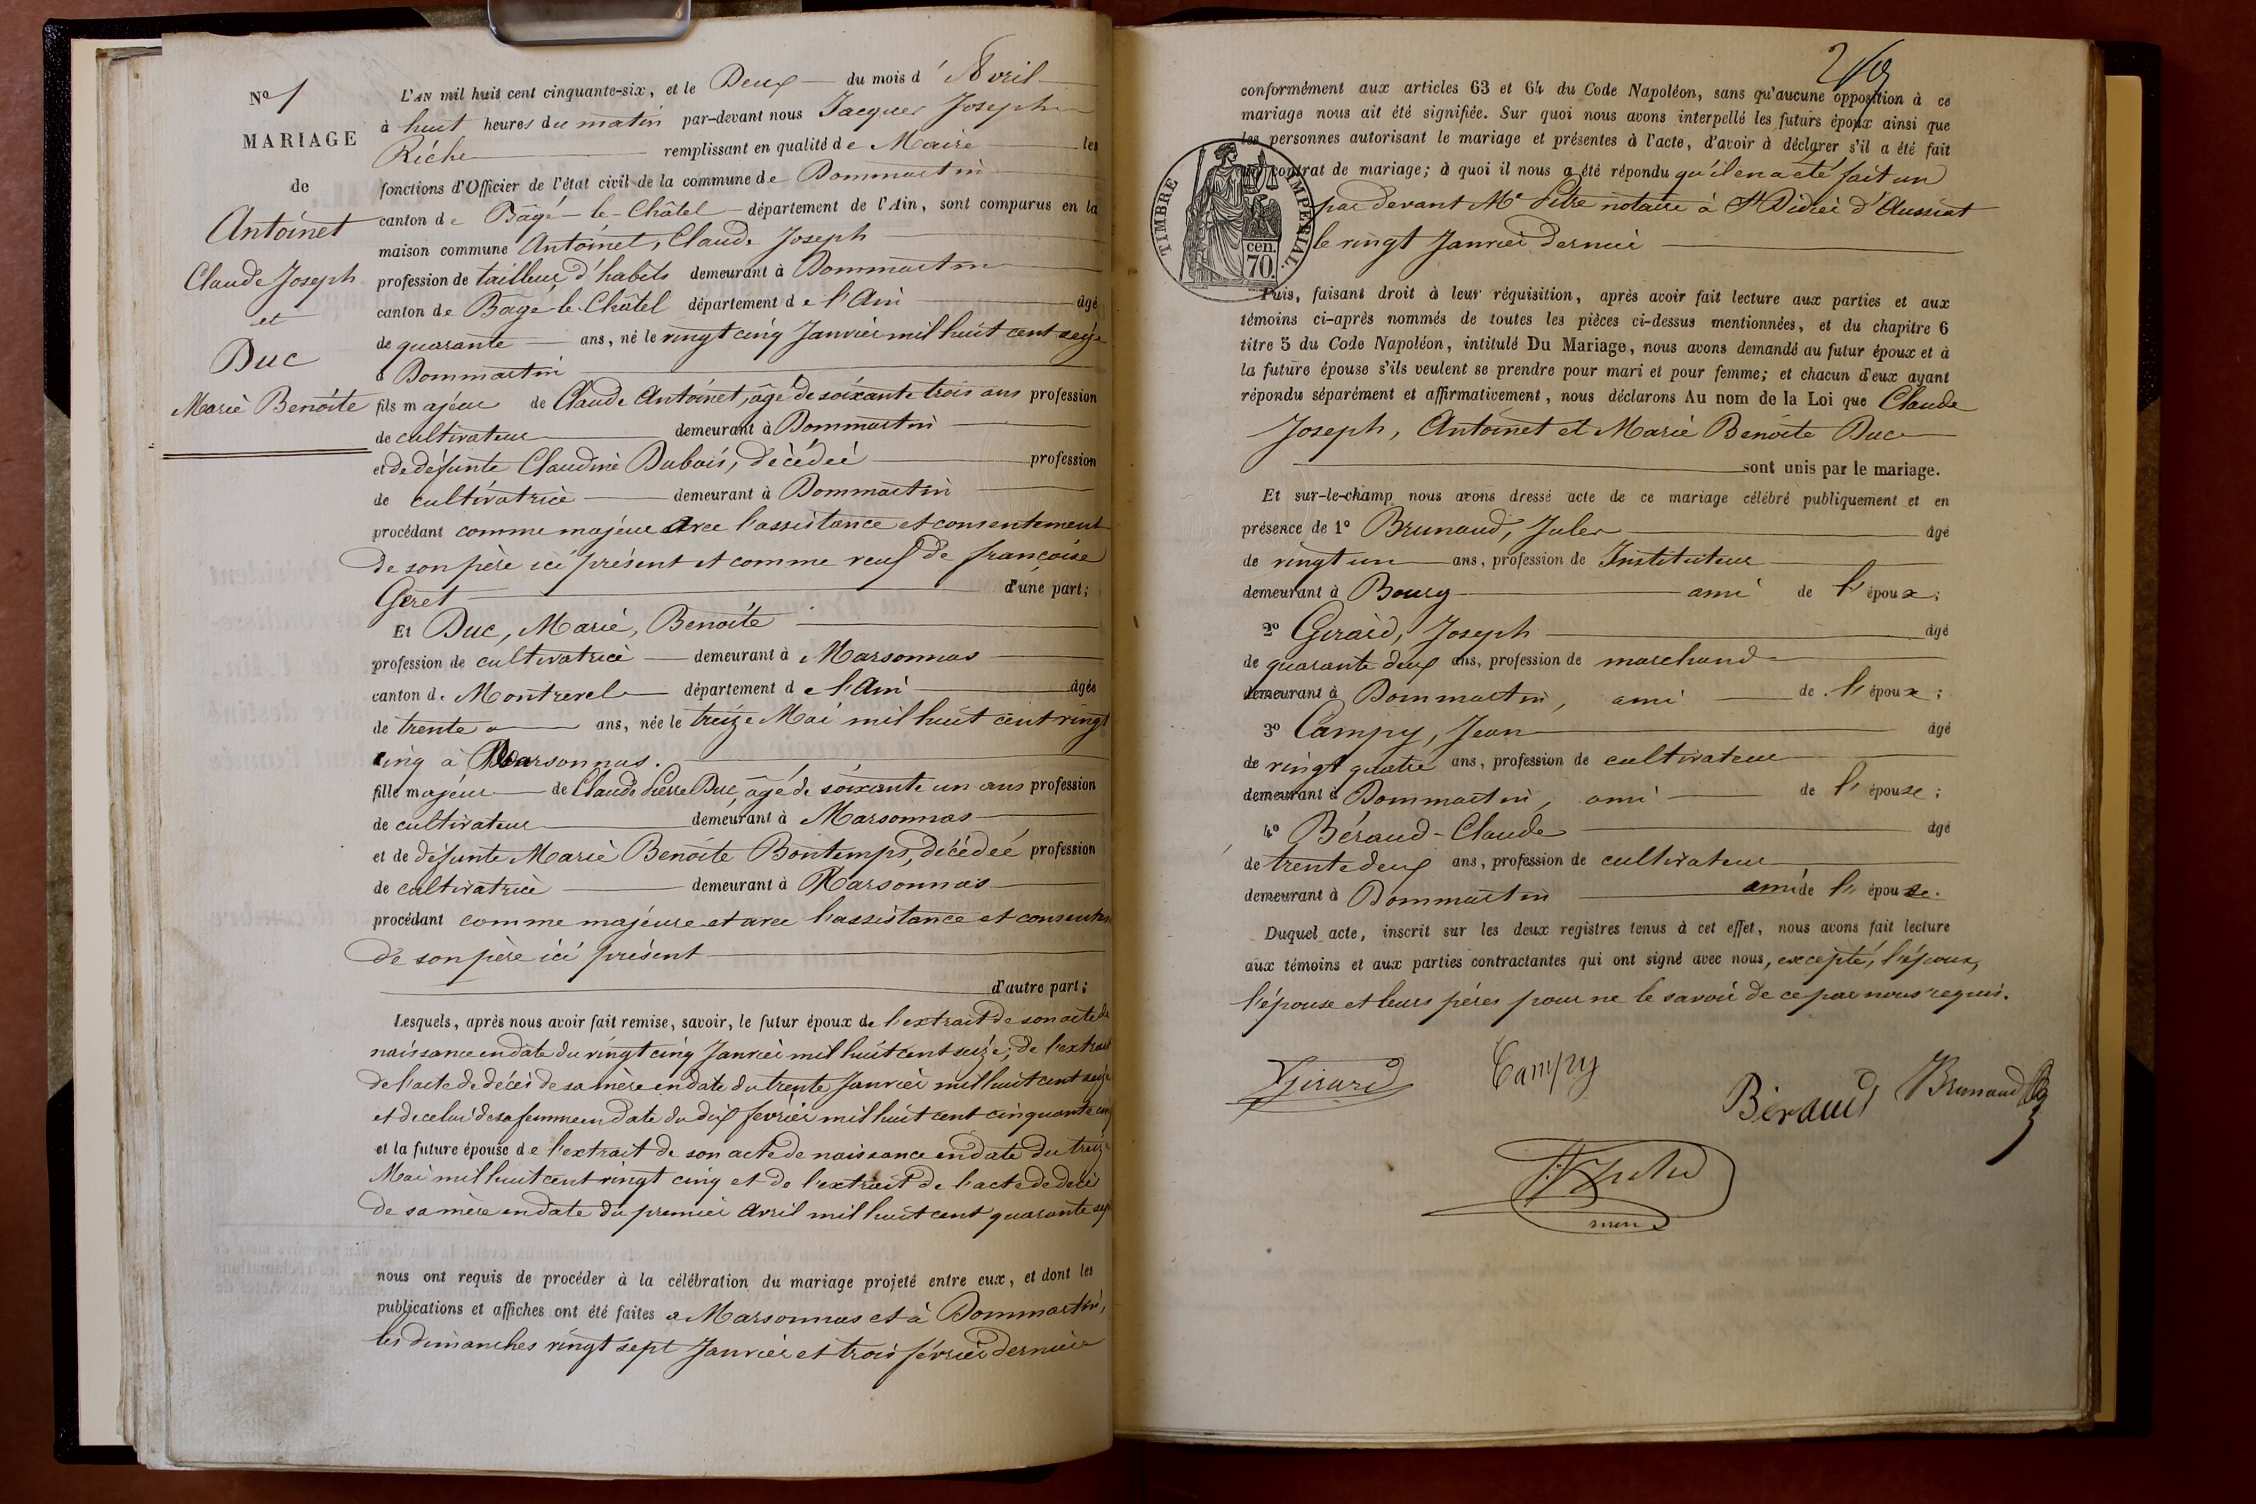 No 1
MARIAGE
de
Antoinet
Claude Joseph
et
Duc
Marie Benoite
L'AN mil huit cent cinquante-six, et le Deux du mois d'Avril
à huit heures du matin par-devant nous Jacques Joseph
Riche remplissant en qualité de Maire les
fonctions d'Officier de l'état civil de la commune de Dommartin
canton de Bâgé-le-Châtel département de l'Ain, sont comparus en la
maison commune Antoinet, Claude Joseph
profession de tailleur d'habits demeurant à Dommartin
canton de Bâgé-le-Châtel département de l'Ain âgé
de quarante ans, né le vingt cinq Janvier mil huit cent seize
à Dommartin
fils majeur de Claude Antoinet, âgé de soixante trois ans profession
de cultivateur demeurant à Dommartin
et de défunte Claudine Dubois, décédée profession
de cultivatrice demeurant à Dommartin
procédant comme majeur avec l'assistance et consentement
de son père ici présent et comme veuf de françoise
Geret d'une part;
Et Duc, Marie, Benoite
profession de cultivatrice demeurant à Marsonnas
canton de Montrevel département de l'Ain âgée
de trente ans, née le treize Mai mil huit cent vingt
cinq à Marsonnas.
fille majeur de Claude Pierre Duc, âgé de soixante un ans profession
de cultivateur demeurant à Marsonnas
et de défunte Marie Benoite Bontemps, décédée profession
de cultivatrice demeurant à Marsonnas
procédant comme majeure et avec l'assistance et consentem
de son père ici présent
d'autre part;
Lesquels, après nous avoir fait remise, savoir, le futur époux de l'extrait de son acte de
naissance en date du vingt cinq Janvier mil huit cent seize; de l'extrait
de l'acte de décès de sa mère en date du trente Janvier mil huit cent seize
et de celui de sa femme en date du dix février mil huit cent cinquante cinq
et la future épouse de l'extrait de son acte de naissance en date du treize
Mai mil huit cent vingt cinq et de l'extrait de l'acte de décès
de sa mère en date du premier Avril mil huit cent quarante sept
nous ont requis de procéder à la célébration du mariage projeté entre eux, et dont les
publications et affiches ont été faites à Marsonnas et à Dommartin,
les dimanches vingt sept Janvier et trois février dernier
conformément aux articles 63 et 64 du Code Napoléon, sans qu'aucune opposition à ce
mariage nous ait été signifiée. Sur quoi nous avons interpellé les futurs époux ainsi que
les personnes autorisant le mariage et présentes à l'acte, d'avoir à déclarer s'il a été fait
contrat de mariage; à quoi il nous a été répondu qu'il en a été fait un
par devant Me notaire à St Didier d'Aussiat
le vingt Janvier dernier
TIMBRE IMPERIAL.
cen.
70.
Puis, faisant droit à leur réquisition, après avoir fait lecture aux parties et aux
témoins ci-après nommés de toutes les pièces ci-dessus mentionnées, et du chapitre 6
titre 5 du Code Napoléon, intitulé Du Mariage, nous avons demandé au futur époux et à
la future épouse s'ils veulent se prendre pour mari et pour femme; et chacun d'eux ayant
répondu séparément et affirmativement, nous déclarons Au nom de la Loi que Claude
Joseph, Antoinet et Marie Benoite Duc
sont unis par le mariage.
Et sur-le-champ nous avons dressé acte de ce mariage célébré publiquement et en
présence de 1° Brunaud, Jules âgé
de vingt un ans, profession de Instituteur
demeurant à Bourg ami de l'époux;
2° Girard, Joseph âgé
de quarante deux ans, profession de marchand
demeurant à Dommartin, ami de l'époux;
3° Campy, Jean âgé
de vingt quatre ans, profession de cultivateur
demeurant à Dommartin, ami de l'épouse;
4° Béraud-Claude âgé
de trente deux ans, profession de cultivateur
demeurant à Dommartin ami de l'épouse.
Duquel acte, inscrit sur les deux registres tenus à cet effet, nous avons fait lecture
aux témoins et aux parties contractantes qui ont signé avec nous, excepté, l'époux,
l'épouse et leurs pères pour ne le savoir de ce par nous requis.
Girard
Campy
Béraud
Brunaud